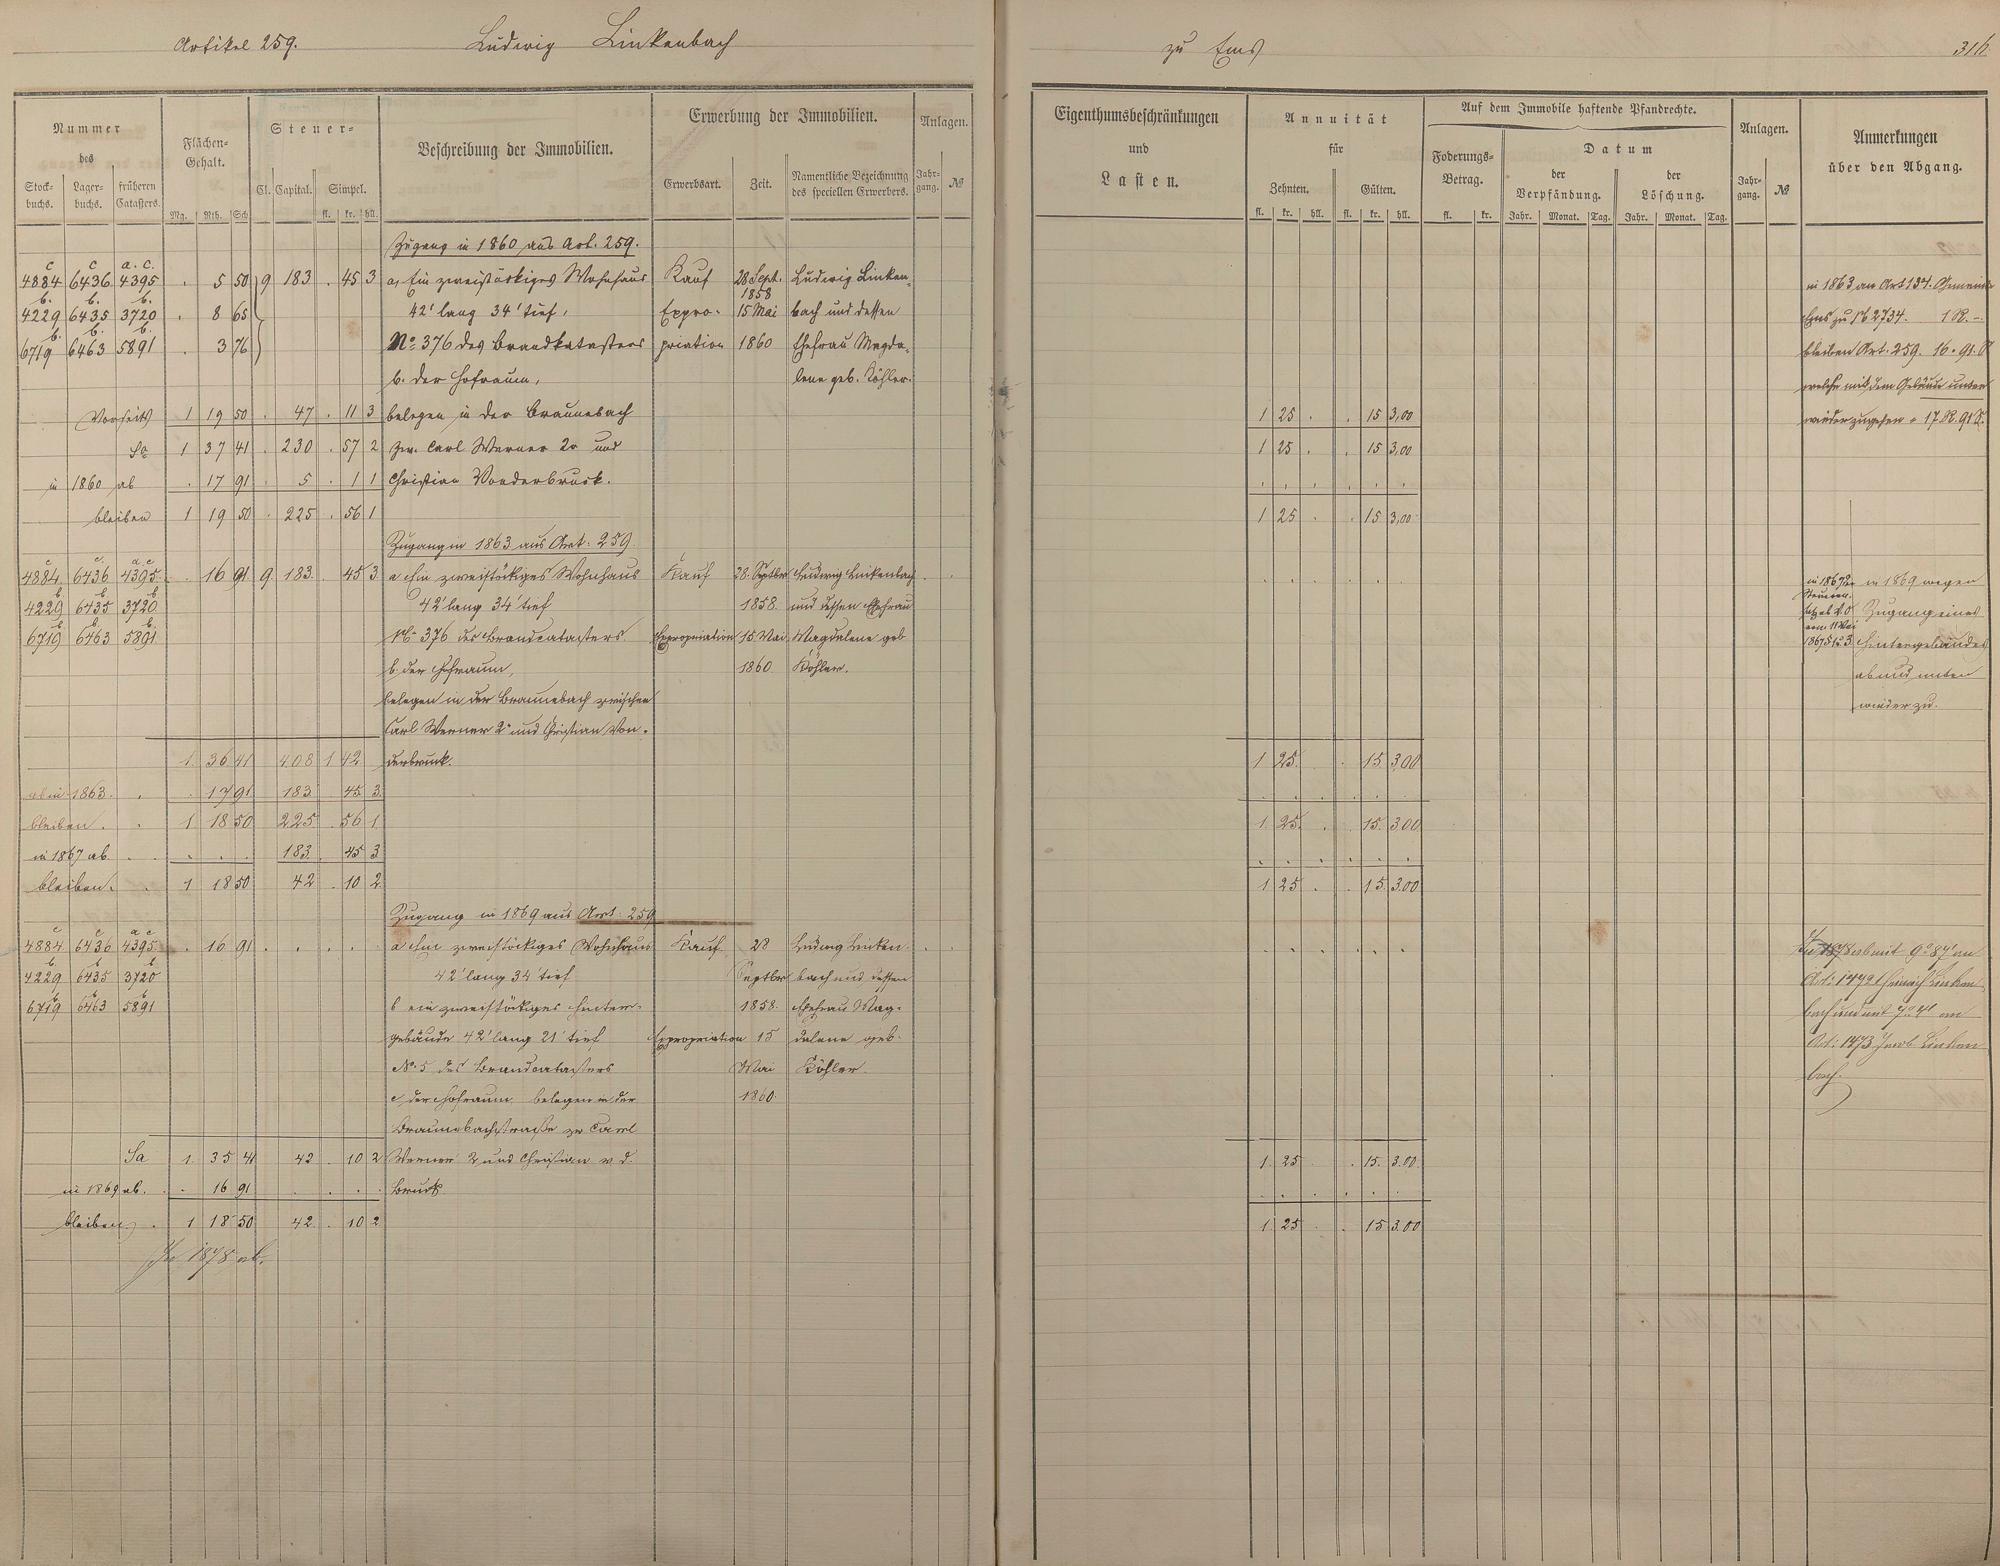 Artikel 259. Ludwig Linkenbach
Nummer des
Stock- buchs. Lager- buchs. früheren Catasters.
Flächen- Gehalt.
Mg. Rth. Sch
Steuer-
Cl. Capital. Simpel.
fl. kr. hll.
Beschreibung der Immobilien.
Erwerbung der Immobilien.
Erwerbsart. Zeit. Namentliche Bezeichnung des speciellen Erwerbers.
Anlagen.
Jahr- gang. №
Zugang in 1860 aus Art. 259.
c c a. c.
4884 6436 4395 . 5 50 9 183 . 45 3 a, Ein zweistöckiges Wohnhaus Kauf 28 Sept. Ludwig Linken-
b. b. b. 1858
4229 6435 3720 . 8 65 42' lang 34' tief, Expro- 15 Mai bach und dessen
b. b. b.
6719 6463 5891 . 3 76 No 376 des Brandkatasters priation 1860 Ehefrau Magda-
b. der Hofraum, lene geb. Köhler.
Vorseits 1 19 50 . 47 . 11 3 belegen in der Braunebach
Sa 1 37 41 . 230 . 57 2 zw. Carl Werner 2r und
in 1860 ab . 17 91 . 5 . 1 1 Christian Vonderbruck.
bleiben 1 19 50 . 225 . 56 1
Zugang in 1863 aus Art. 259
c c. a. c
4884 6436 4395 . 16 91 9 183. . 45 3 a Ein zweistöckiges Wohnhaus Kauf 28. Septbr Ludwig Linkenbach
b b b
4229 6435 3720 42' lang 34' tief 1858. und dessen Ehefrau
b b. b.
6719 6463 5891 No 376 des Brandcatasters Expropriation 15 Mai Magdalene geb
b. der Hofraum, 1860. Köhler.
belegen in der Braunebach zwischen
Carl Werner 2r und Christian Von-
1. 36 41 408 1 42 derbruck.
ab in 1863. . . 17 91 183 45 3.
bleiben. . 1 18 50 225 . 56 1
in 1867 ab. . . . . 183 . 45 3
bleiben. . 1 18 50 42 . 10 2
Zugang in 1869 aus Art. 259
c c a c
4884 6436 4395 . 16 91 . . . . a Ein zweistöckiges Wohnhaus Kauf 28 Ludwig Linken-
b b b
4229 6435 3720 42' lang 34' tief Septbr bach und dessen
b b b
6719 6463 5891 b ein zweistöckiges Hinter- 1858. Ehefrau Mag-
gebäude 42' lang 21' tief Expropriation 15 dalene geb.
No. 5 des Brandcatasters Mai Köhler.
c der Hofraum belegen in der 1860.
Braunebachstraße zw Carl
Sa 1. 35 41 42 . 10 2 Werner 2 und Christian v d.
in 1869 ab. . . 16 91 . . . . Bruck
bleiben. . 1 18 50 42. . 10 2
In 1878 ab.
zu Ems 316.
Eigenthumsbeschränkungen und Lasten.
Annuität für
Zehnten. Gülten.
fl. kr. hll. fl. kr. hll.
Auf dem Immobile haftende Pfandrechte.
Foderungs- Betrag.
fl. kr.
Datum
der Verpfändung. der Löschung.
Jahr. Monat. Tag. Jahr. Monat. Tag.
Anlagen.
Jahr- gang. №
Anmerkungen über den Abgang.
in 1863 an Art 134. Gemeinde
Ems zu № 2734. 1 R. –
bleiben Art. 259. 16 . 91.
welche mit dem Gebäude unten
1 25 . . 15 3,00 wieder zugehen
1 25 . . 15 3,00
. . . . . .
1 25 . . 15 3,00
in 1869 wegen
Zugang eines
vom 11 Mai
Hintergebäudes
ab und unten
wieder zu.
1 25. . 15 3,00
. . . . . .
1. 25. . . 15. 3.00
. . . . . .
1 25 . . 15. 3.00
In 1878 ab mit 9a 87' an
Art. 1472 Heinrich Linken-
bach und mit an
Art. 1473 Jacob Linken-
bach.
1. 25 . 15. 3.00.
. . . . . .
1. 25 . . 15 3.00